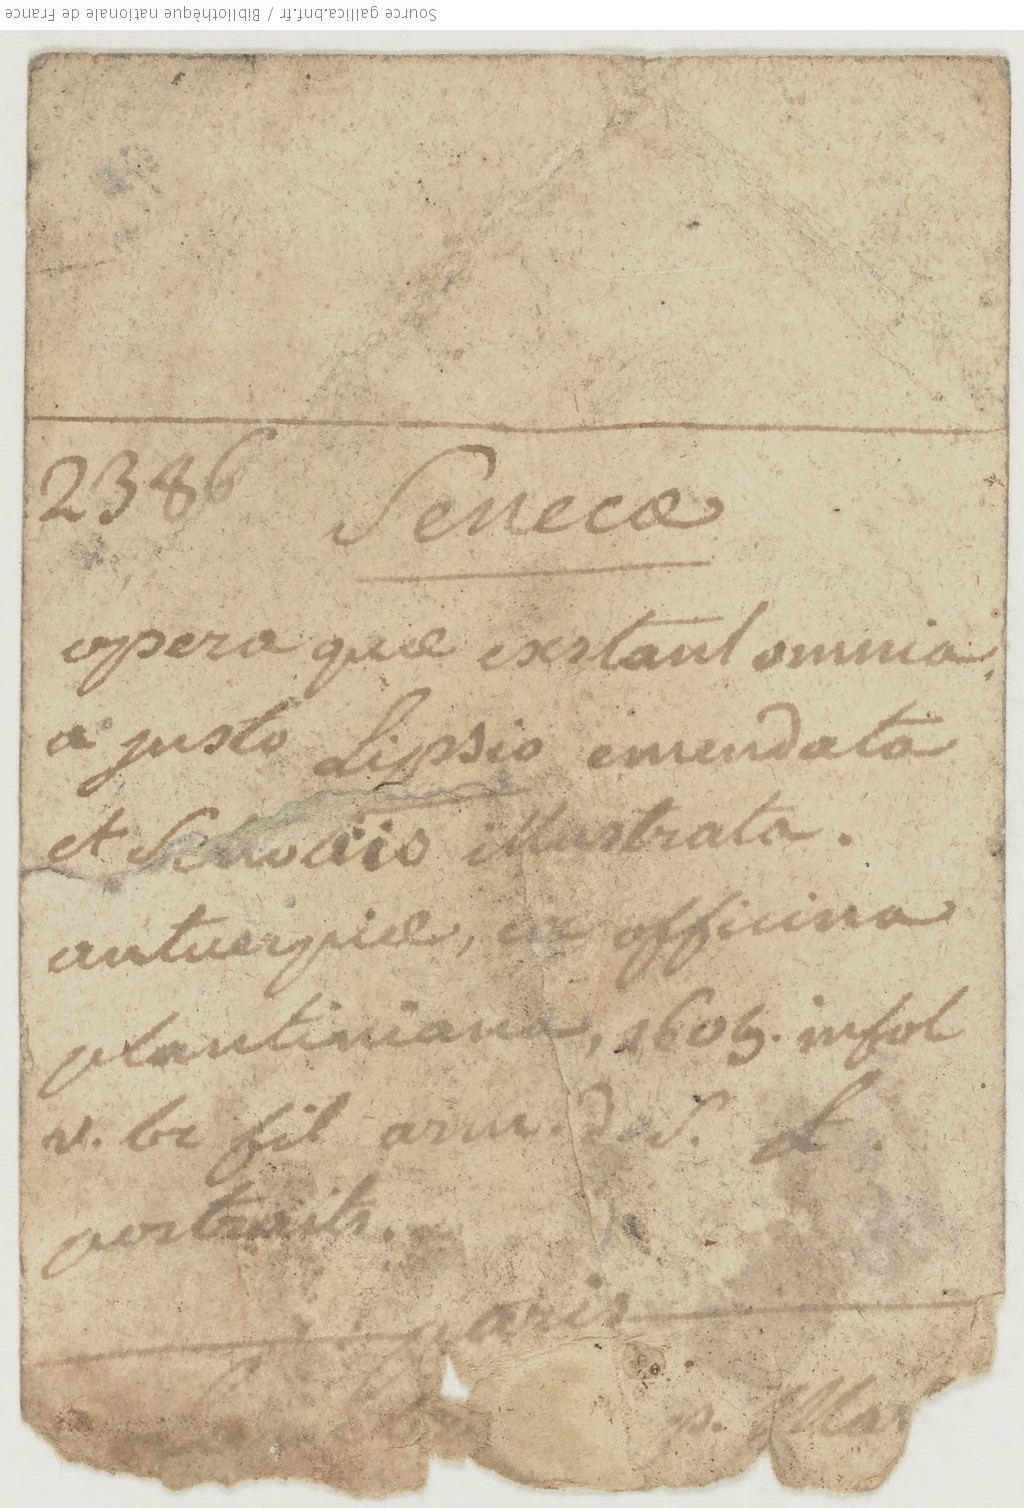 Source gallica.bnf.fr / Bibliothèque nationale de France
2386
Senecæ
opera quæ exstant omnia,
a justo Lipsio emendata
et Scholiis illustrata.
antuerpiæ, ex officina
plantiniana, 1605. infol
v. br fil arm. d. S. L.
portraits.
paris
p. Mar